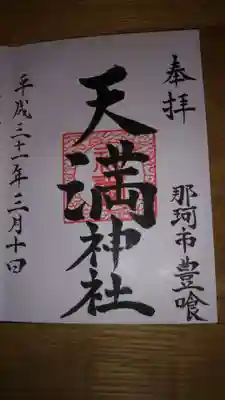 奉拝
那珂市豊喰
天満神社
平成三十一年三月十四日